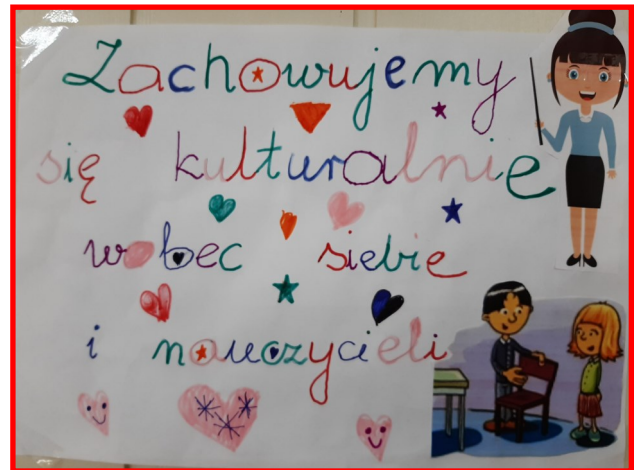 Zachowujemy
się kulturalnie
wobec siebie
i nauczycieli